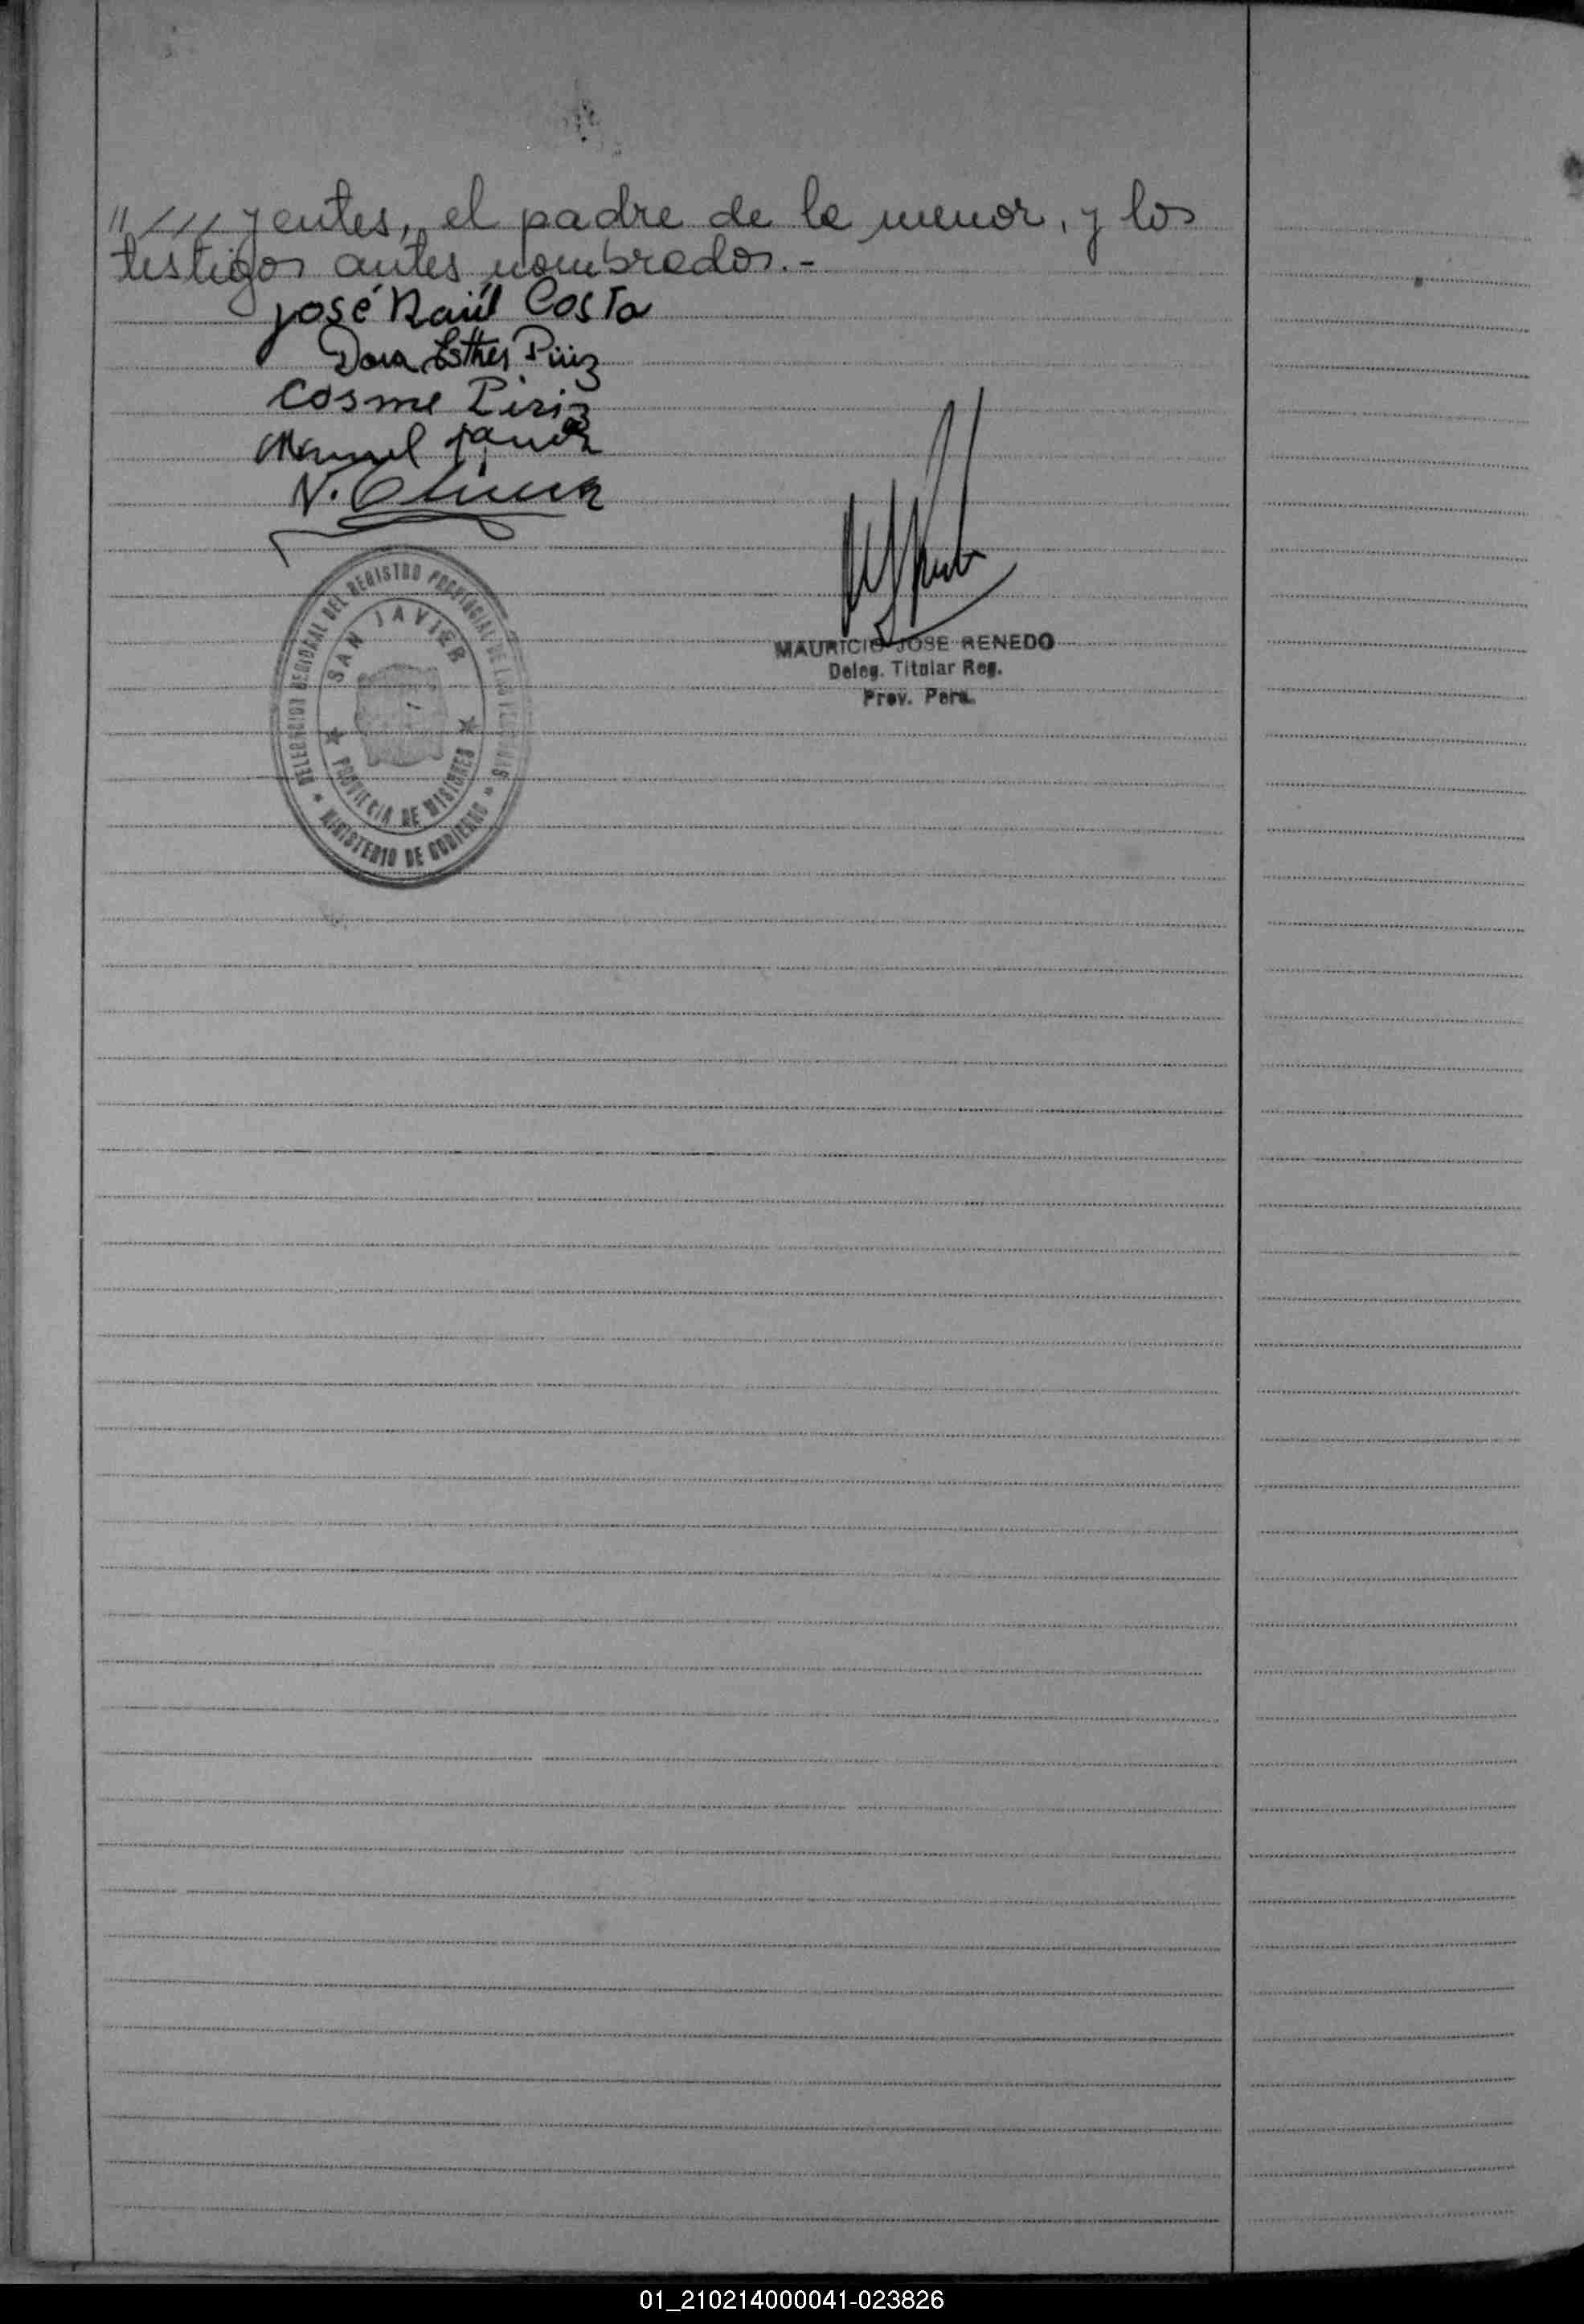 "///yentes, el padre de la menor, y los
testigos antes nombrados.-
José Raúl Costa
Dora Esther Piriz
Cosme Piriz
Manuel
N.
DELEGACION REGIONAL DEL REGISTRO PROVINCIAL DE LAS PERSONAS
SAN JAVIER
PROVINCIA DE MISIONES
* MINISTERIO DE GOBIERNO *
MAURICIO JOSE RENEDO
Deleg. Titular Reg.
Prov. Pers.
01_210214000041-023826